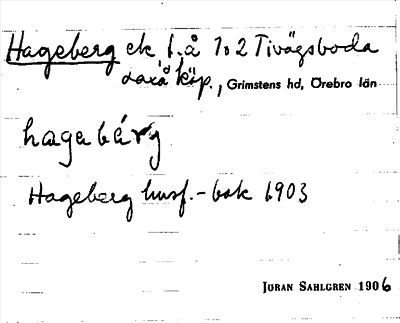 Hageberg ek f. å 1o2 Tivägsboda
Laxå köp., Grimstens hd, Örebro län
hagabärg
Hageberg husf.-bok 1903
JÖRAN SAHLGREN 1906